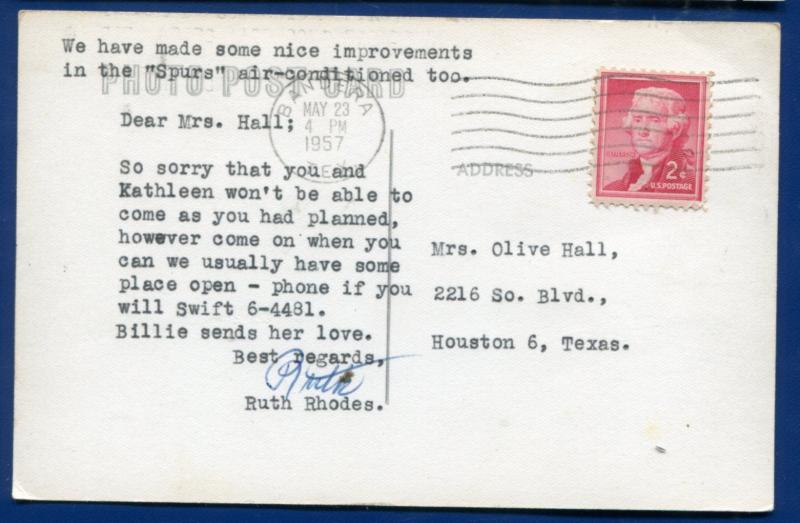 We have made some nice improvements
in the "Spurs" air-conditioned too.
PHOTO POST CARD
BANDERA
MAY 23
4 PM
1957
TEX.
Dear Mrs. Hall;
So sorry that you and
Kathleen won't be able to
come as you had planned,
however come on when you
can we usually have some
place open - phone if you
will Swift 6-4481.
Billie sends her love.
Best regards,
Ruth
Ruth Rhodes.
ADDRESS
JEFFERSON
2¢
U.S. POSTAGE
Mrs. Olive Hall,
2216 So. Blvd.,
Houston 6, Texas.